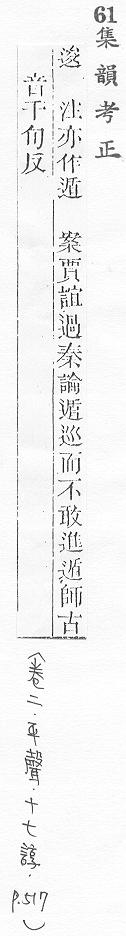 61集韻考正
逡 注亦作遁 案賈誼過秦論遁巡而不敢進遁師古
音千旬反
(卷二.平聲.十七諄.p.517)